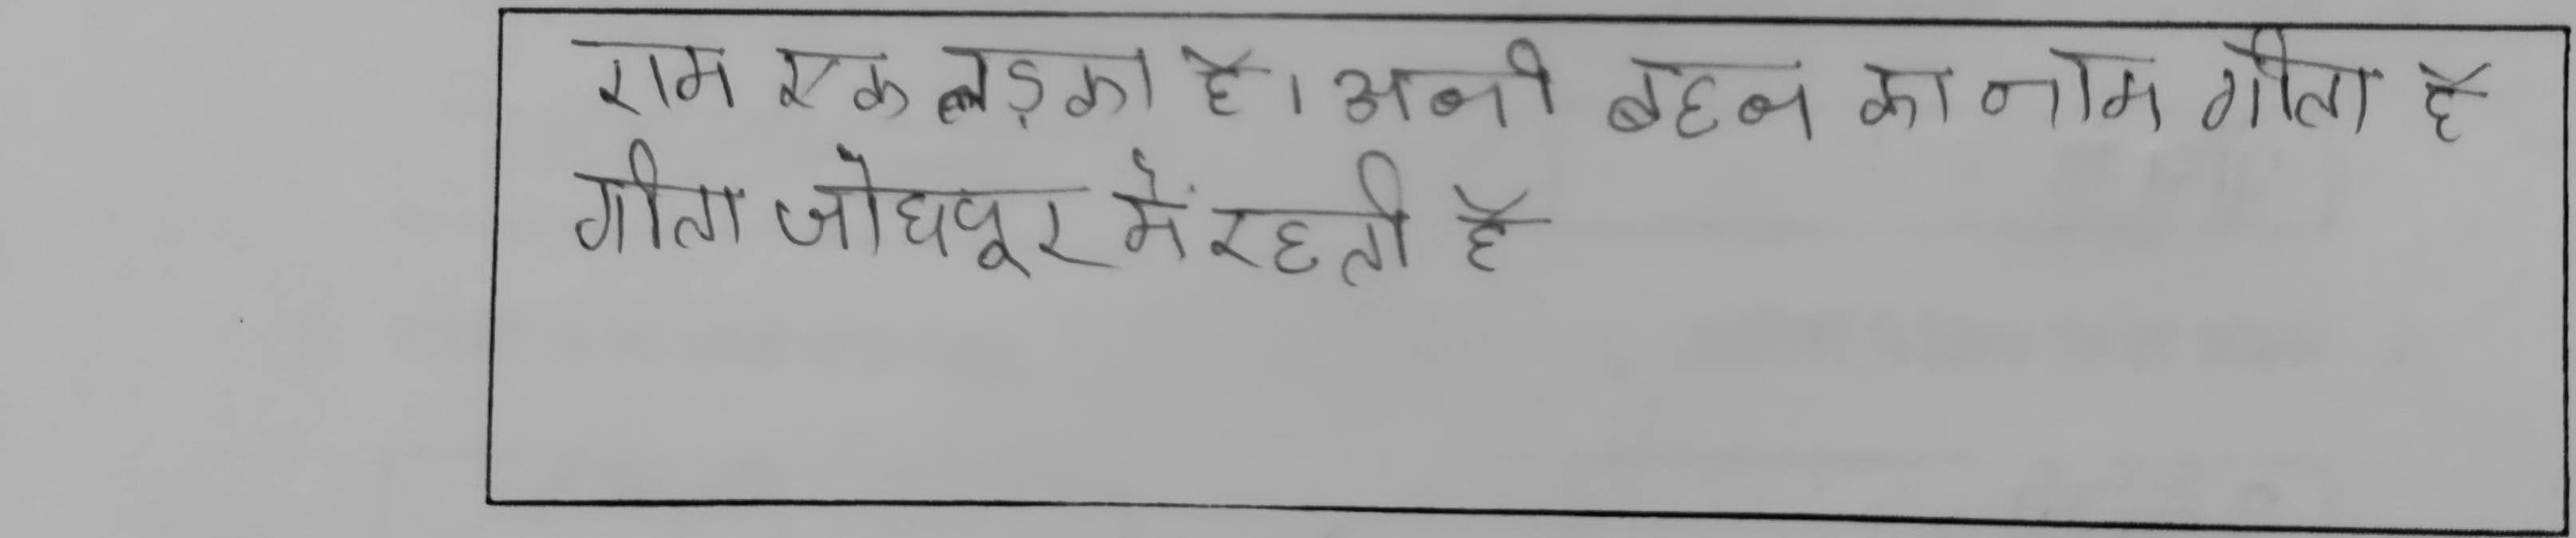 राम एक लड़का है। अनी बहन का नाम गीता है
गीता जोधपूर में रहती है